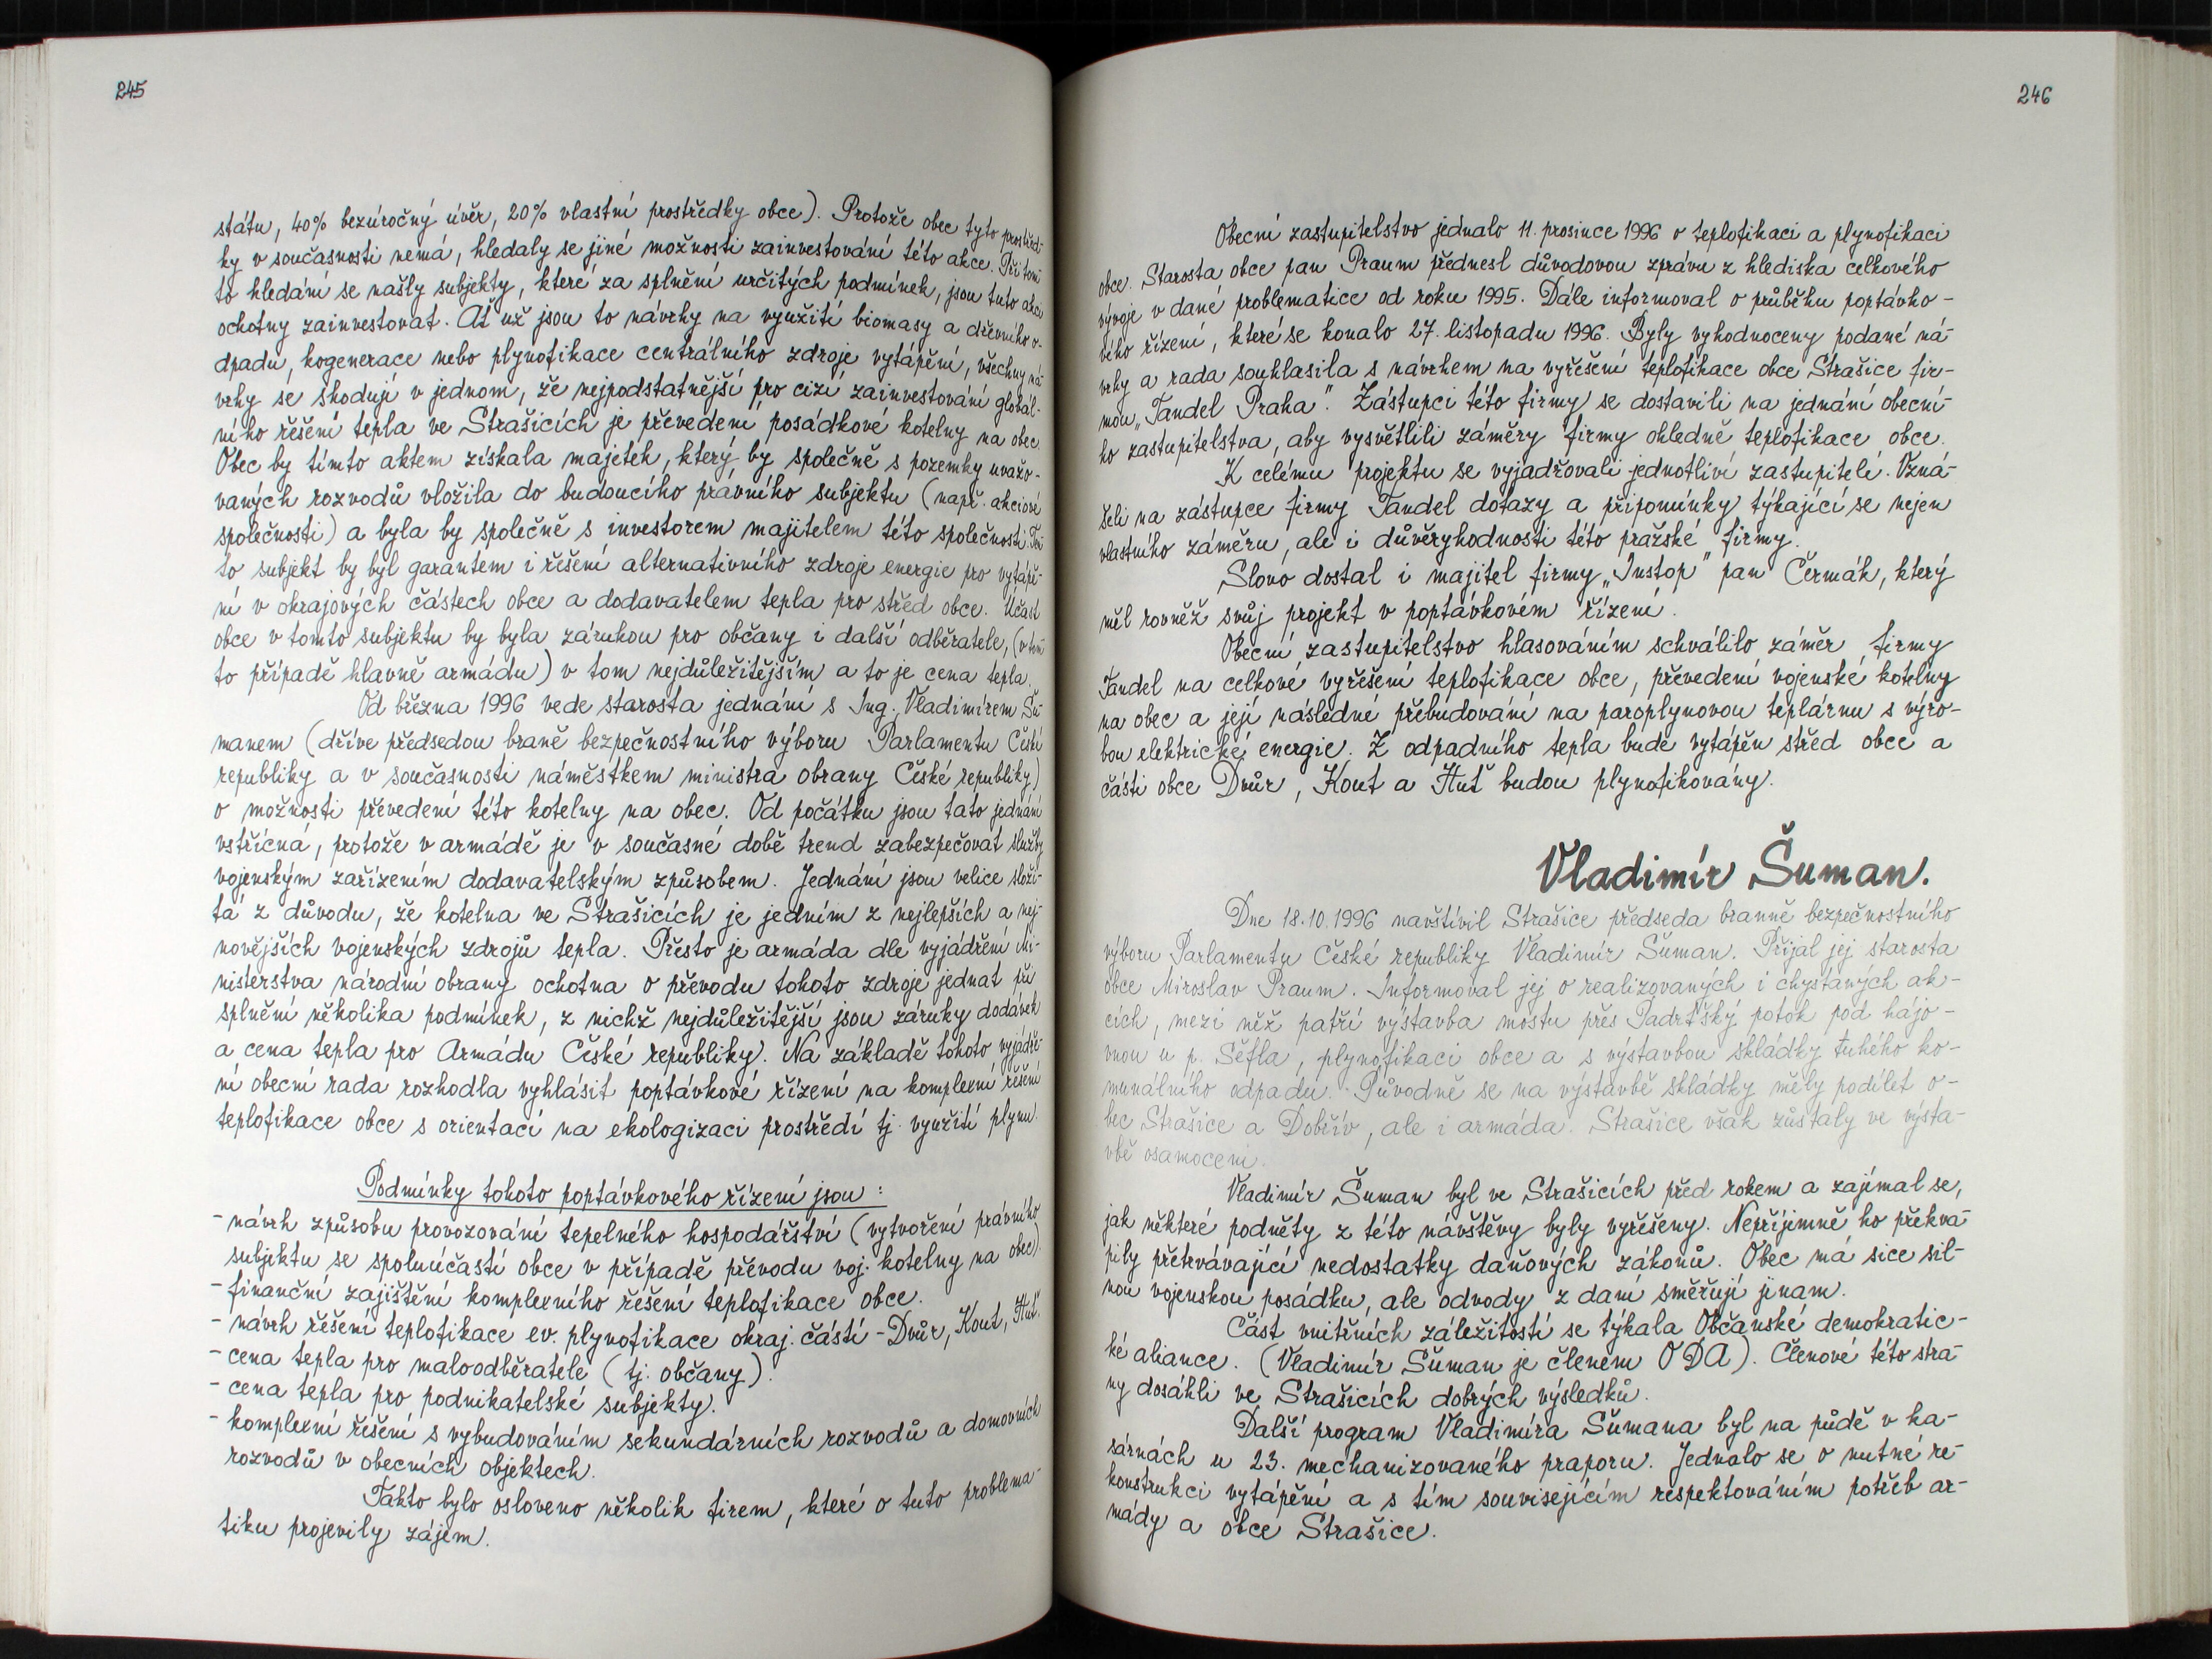 245
státu, 40% bezúročný úvěr, 20% vlastní prostředky obce). Protože obec tyto prostřed-
ky v současnosti nemá, hledaly se jiné možnosti zainvestování této akce. Při tom-
to hledání se našly subjekty, které za splnění určitých podmínek, jsou tuto akci
ochotny zainvestovat. Ať už jsou to návrhy na využití biomasy a dřevního o-
dpadu, kogenerace nebo plynofikace centrálního zdroje vytápění, všechny ná-
vrhy se shodují v jednom, že nejpodstatnější pro cizí zainvestování globál-
ního řešení tepla ve Strašicích je převedení posádkové kotelny na obec.
Obec by tímto aktem získala majetek, který by společně s pozemky uvažo-
vaných rozvodů vložila do budoucího právního subjektu (např. akciové
společnosti) a byla by společně s investorem majitelem této společnosti. Ten-
to subjekt by byl garantem i řešení alternativního zdroje energie pro vytápě-
ní v okrajových částech obce a dodavatelem tepla pro střed obce. Účast
obce v tomto subjektu by byla zárukou pro občany i další odběratele, (v tom-
to případě hlavně armádu) v tom nejdůležitějším a to je cena tepla.
Od března 1996 vede starosta jednání s Ing. Vladimírem Šu-
manem (dříve předsedou braně bezpečnostního výboru Parlamentu České
republiky a v současnosti náměstkem ministra obrany České republiky)
o možnosti převedení této kotelny na obec. Od počátku jsou tato jednání
vstřícná, protože v armádě je v současné době trend zabezpečovat služby
vojenským zařízením dodavatelským způsobem. Jednání jsou velice složi-
tá z důvodu, že kotelna ve Strašicích je jedním z nejlepších a nej-
novějších vojenských zdrojů tepla. Přesto je armáda dle vyjádření Mi-
nisterstva národní obrany ochotna o převodu tohoto zdroje jednat při
splnění několika podmínek, z nichž nejdůležitější jsou záruky dodávek
a cena tepla pro Armádu České republiky. Na základě tohoto vyjádře-
ní obecní rada rozhodla vyhlásit poptávkové řízení na komplexní řešení
teplofikace obce s orientací na ekologizaci prostředí tj. využití plynu.
Podmínky tohoto poptávkového řízení jsou :
- návrh způsobu provozování tepelného hospodářství (vytvoření právního
subjektu se spoluúčastí obce v případě převodu voj. kotelny na obec).
- finanční zajištění komplexního řešení teplofikace obce.
- návrh řešení teplofikace ev. plynofikace okraj. částí - Dvůr, Kout, Huť.
- cena tepla pro maloodběratele (tj. občany).
- cena tepla pro podnikatelské subjekty.
- komplexní řešení s vybudováním sekundárních rozvodů a domovních
rozvodů v obecních objektech.
Takto bylo osloveno několik firem, které o tuto problema-
tiku projevily zájem.
246
Obecní zastupitelstvo jednalo 11. prosince 1996 o teplofikaci a plynofikaci
obce. Starosta obce pan Praum přednesl důvodovou zprávu z hlediska celkového
vývoje v dané problematice od roku 1995. Dále informoval o průběhu poptávko-
vého řízení, které se konalo 27. listopadu 1996. Byly vyhodnoceny podané ná-
vrhy a rada souhlasila s návrhem na vyřešení teplofikace obce Strašice fir-
mou „Tandel Praha". Zástupci této firmy se dostavili na jednání obecní-
ho zastupitelstva, aby vysvětlili záměry firmy ohledně teplofikace obce.
K celému projektu se vyjadřovali jednotliví zastupitelé. Vzná-
šeli na zástupce firmy Tandel dotazy a připomínky týkající se nejen
vlastního záměru, ale i důvěryhodnosti této pražské firmy.
Slovo dostal i majitel firmy „Instop" pan Čermák, který
měl rovněž svůj projekt v poptávkovém řízení.
Obecní zastupitelstvo hlasováním schválilo záměr firmy
Tandel na celkové vyřešení teplofikace obce, převedení vojenské kotelny
na obec a její následné přebudování na paroplynovou teplárnu s výro-
bou elektrické energie. Z odpadního tepla bude vytápěn střed obce a
části obce Dvůr, Kout a Huť budou plynofikovány.
Vladimír Šuman.
Dne 18.10.1996 navštívil Strašice předseda branně bezpečnostního
výboru Parlamentu České republiky Vladimír Šuman. Přijal jej starosta
obce Miroslav Praum. Informoval jej o realizovaných i chystaných ak-
cích, mezi něž patří výstavba mostu přes Padrťský potok pod hájo-
vnou u p. Šefla, plynofikaci obce a s výstavbou skládky tuhého ko-
munálního odpadu. Původně se na výstavbě skládky měly podílet o-
bec Strašice a Dobřív, ale i armáda. Strašice však zůstaly ve výsta-
vbě osamoceni.
Vladimír Šuman byl ve Strašicích před rokem a zajímal se,
jak některé podněty z této návštěvy byly vyřešeny. Nepříjemně ho překva-
pily přetrvávající nedostatky daňových zákonů. Obec má sice sil-
nou vojenskou posádku, ale odvody z daní směřují jinam.
Část vnitřních záležitostí se týkala Občanské demokratic-
ké aliance. (Vladimír Šuman je členem ODA). Členové této stra-
ny dosáhli ve Strašicích dobrých výsledků.
Další program Vladimíra Šumana byl na půdě v ka-
sárnách u 23. mechanizovaného praporu. Jednalo se o nutné re-
konstrukci vytápění a s tím souvisejícím respektováním potřeb ar-
mády a obce Strašice.